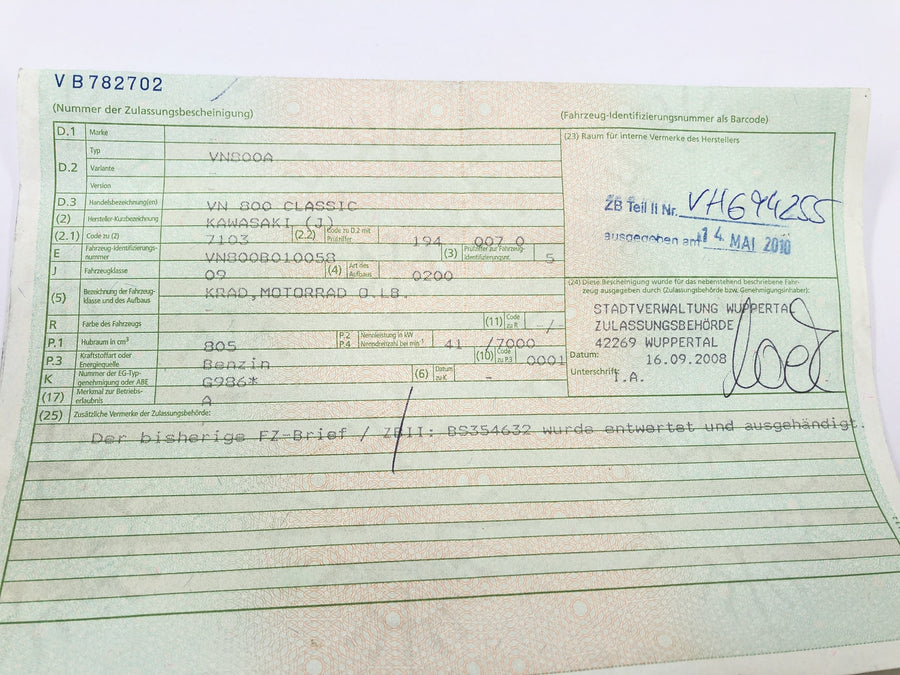 VB782702
(Nummer der Zulassungsbescheinigung)
(Fahrzeug-Identifizierungsnummer als Barcode)
D.1 Marke
(23) Raum für interne Vermerke des Herstellers
D.2 Typ VN800A
Variante
Version
D.3 Handelsbezeichnung(en) VN 800 CLASSIC
ZB Teil II Nr. VH694255
(2) Hersteller-Kurzbezeichnung KAWASAKI (J)
ausgegeben am 14. MAI 2010
(2.1) Code zu (2) 7103 (2.2) Code zu D.2 mit Prüfziffer 194 007 0
E Fahrzeug-Identifizierungsnummer VN800B010058 (3) Prüfziffer zur Fahrzeug-Identifizierungsnr. 5
J Fahrzeugklasse 09 (4) Art des Aufbaus 0200
(5) Bezeichnung der Fahrzeugklasse und des Aufbaus KRAD,MOTORRAD O.LB.
(24) Diese Bescheinigung wurde für das nebenstehend beschriebene Fahrzeug ausgegeben durch (Zulassungsbehörde bzw. Genehmigungsinhaber):
STADTVERWALTUNG WUPPERTAL
ZULASSUNGSBEHÖRDE
42269 WUPPERTAL
Datum: 16.09.2008
Unterschrift: I.A.
R Farbe des Fahrzeugs (11) Code zu R -/
P.1 Hubraum in cm³ 805 P.2 P.4 Nennleistung in kW Nenndrehzahl bei min⁻¹ 41 /7000
P.3 Kraftstoffart oder Energiequelle Benzin (10) Code zu P.3 0001
K Nummer der EG-Typgenehmigung oder ABE G986* (6) Datum zu K -
(17) Merkmal zur Betriebserlaubnis A
(25) Zusätzliche Vermerke der Zulassungsbehörde:
Der bisherige FZ-Brief / ZBII: BS354632 wurde entwertet und ausgehändigt.